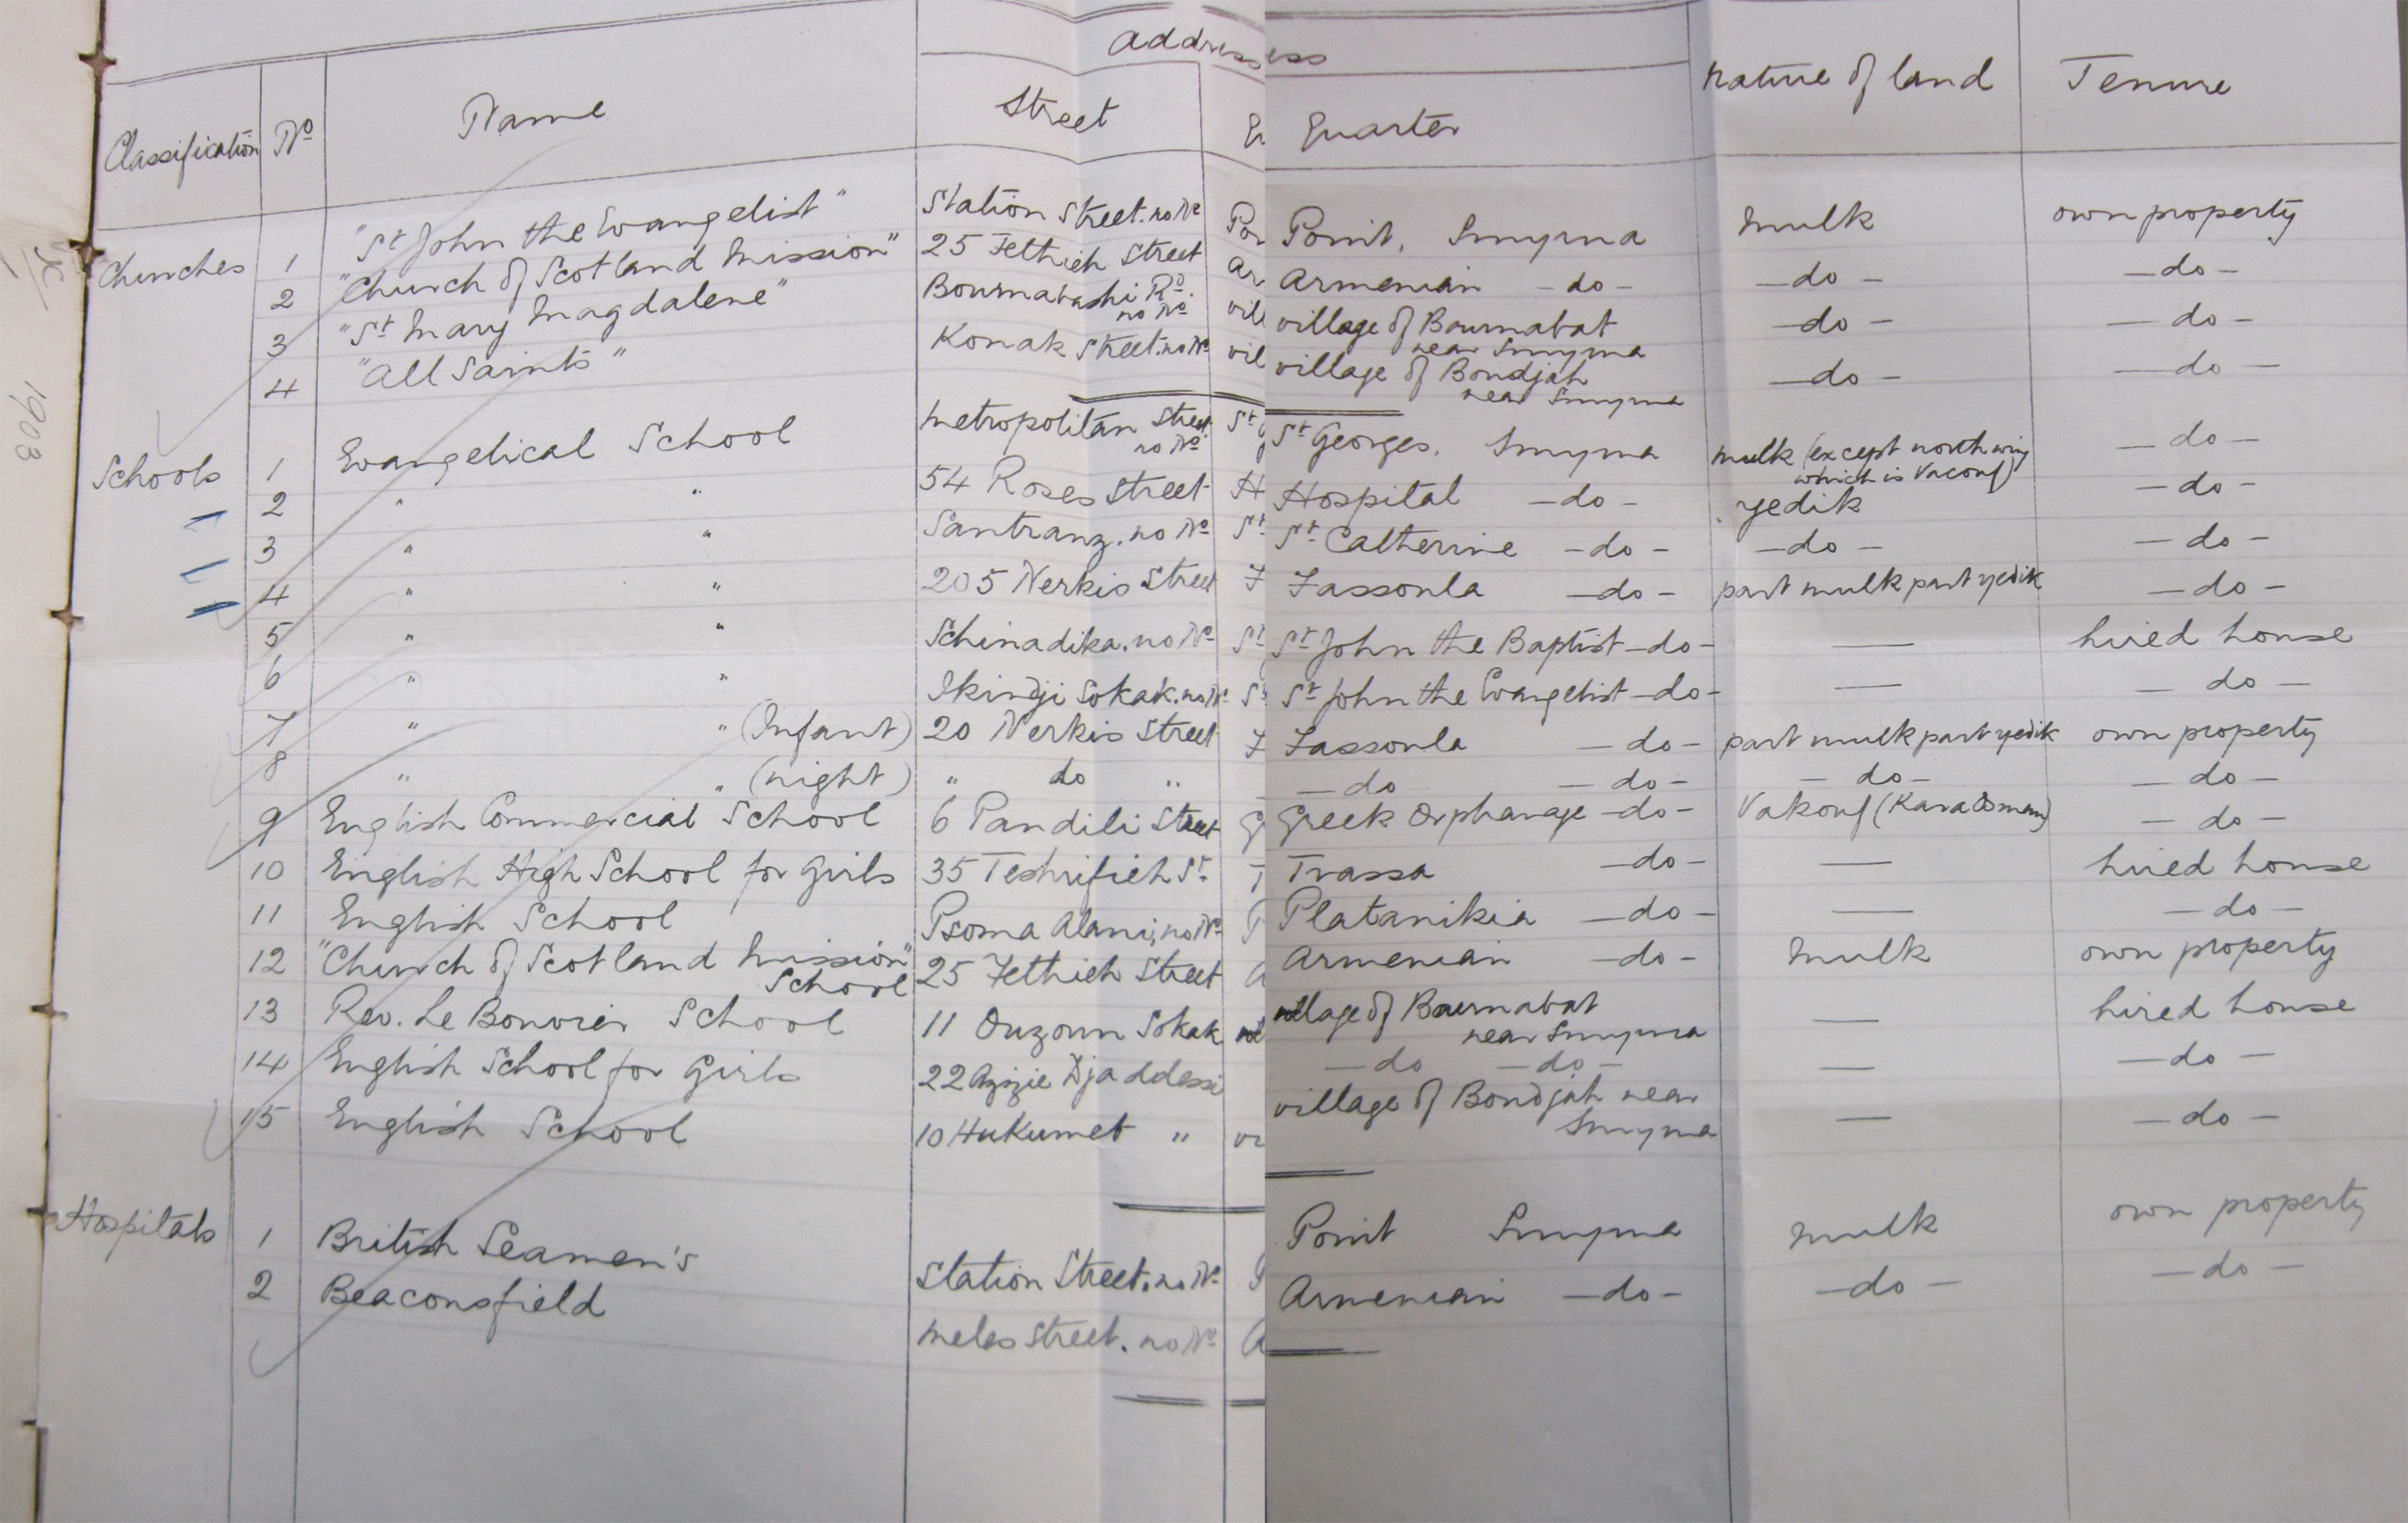 Address
Classification Nº Name Street Quarter Nature of land Tenure
Churches 1 "St John the Evangelist" Station Street. no Nº Point, Smyrna Mulk own property
2 "Church of Scotland Mission" 25 Fethieh Street Armenian -do- -do- -do-
3 "St Mary Magdalene" Bournabashi Rd. no Nº village of Bournabat near Smyrna -do- -do-
4 "All Saints" Konak Street. no Nº village of Boudjah near Smyrna -do- -do-
Schools 1 Evangelical School Metropolitan Street no Nº St Georges, Smyrna mulk (except north wing which is Vacouf) -do-
2 " " 54 Roses Street Hospital -do- yedik -do-
3 " " Santranz. no Nº St Catherine -do- -do- -do-
4 " " 205 Nerkis Street Fassoula -do- part mulk part yedik -do-
5 " " Schinadika. no Nº St John the Baptist -do- — hired house
6 " " Ikindji Sokak. no Nº St John the Evangelist -do- — -do-
7 " " (Infant) 20 Nerkis Street Fassoula -do- part mulk part yedik own property
8 " " (night) " do " -do -do- -do- -do-
9 English Commercial School 6 Pandili Street Greek Orphanage -do- Vakouf (Kara Osman) -do-
10 English High School for Girls 35 Teshrifieh St. Trassa -do- — hired house
11 English School Psoma Alani, no Nº Platanikia -do- — -do-
12 "Church of Scotland Mission" School 25 Fethieh Street Armenian -do- Mulk own property
13 Rev. Le Bouvier School 11 Ouzoun Sokak village of Bournabat near Smyrna — hired house
14 English School for Girls 22 Azizie Djaddessi -do -do- — -do-
15 English School 10 Hukumet " village of Boudjah near Smyrna — -do-
Hospitals 1 British Seamen's Station Street. no Nº Point Smyrna Mulk own property
2 Beaconsfield Meles Street. no Nº Armenian -do- -do- -do-
1903